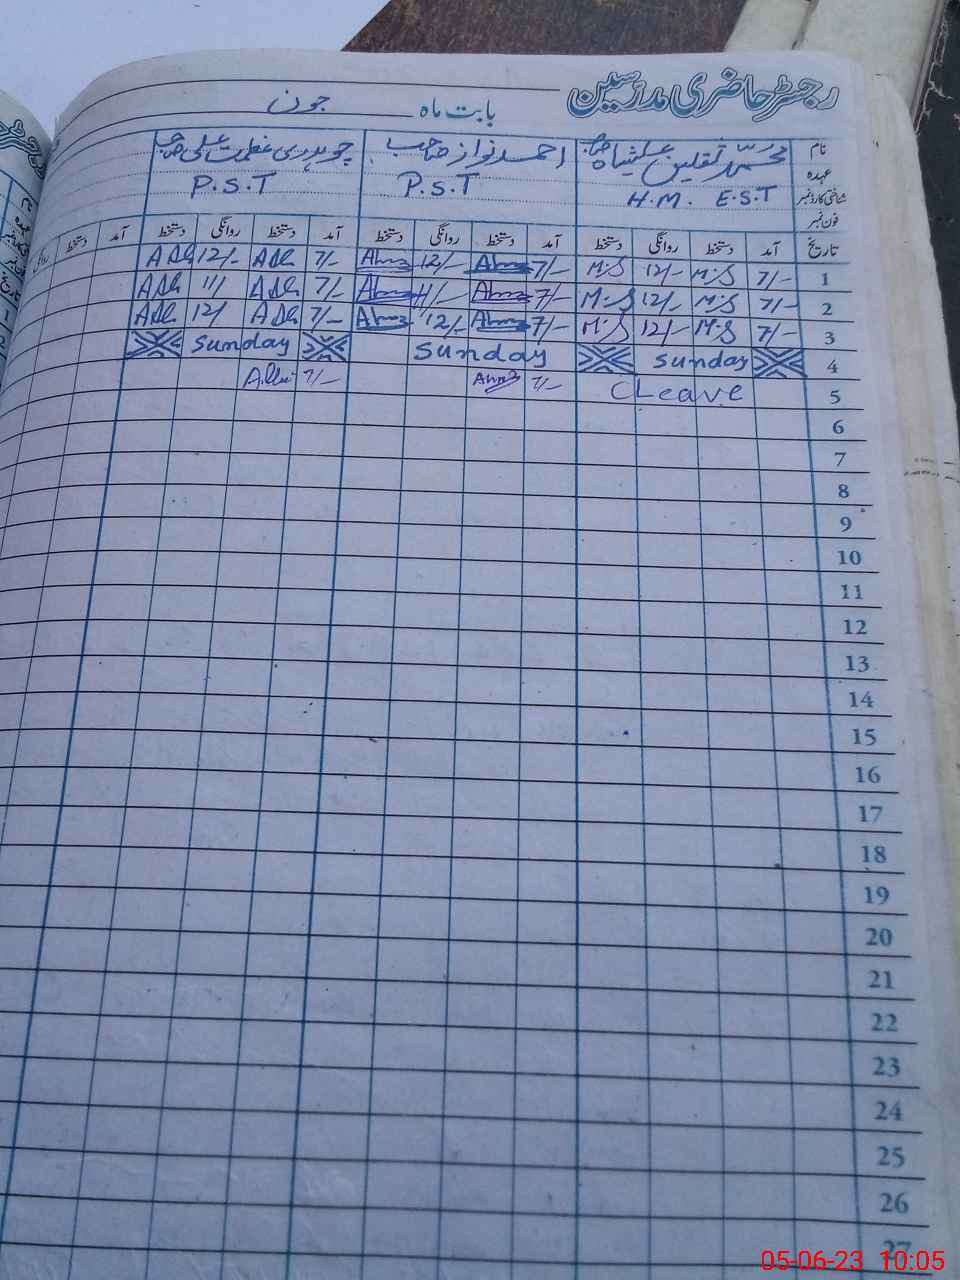 رجسٹر حاضری مدرسین
بابت ماہ جون
نام محمد ثقلین شاہ احمد نواز صاحب چوہدری عظمت علی صاحب
عہدہ
H.M. E.S.T P.S.T P.S.T
شناختی کارڈ نمبر
فون نمبر
تاریخ آمد دستخط روانگی دستخط آمد دستخط روانگی دستخط آمد دستخط روانگی دستخط آمد دستخط
1 7/- M.S 12/- M.S 7/- 12/- 7/- 12/-
2 7/- M.S 12/- M.S 7/- 11/- 7/- 11/
3 7/- M.S 12/- M.S 7/- 12/- 7/- 12/
4 Sunday Sunday Sunday
5 CLeave 7/- 7/-
6
7
8
9
10
11
12
13
14
15
16
17
18
19
20
21
22
23
24
25
26
27
05-06-23 10:05